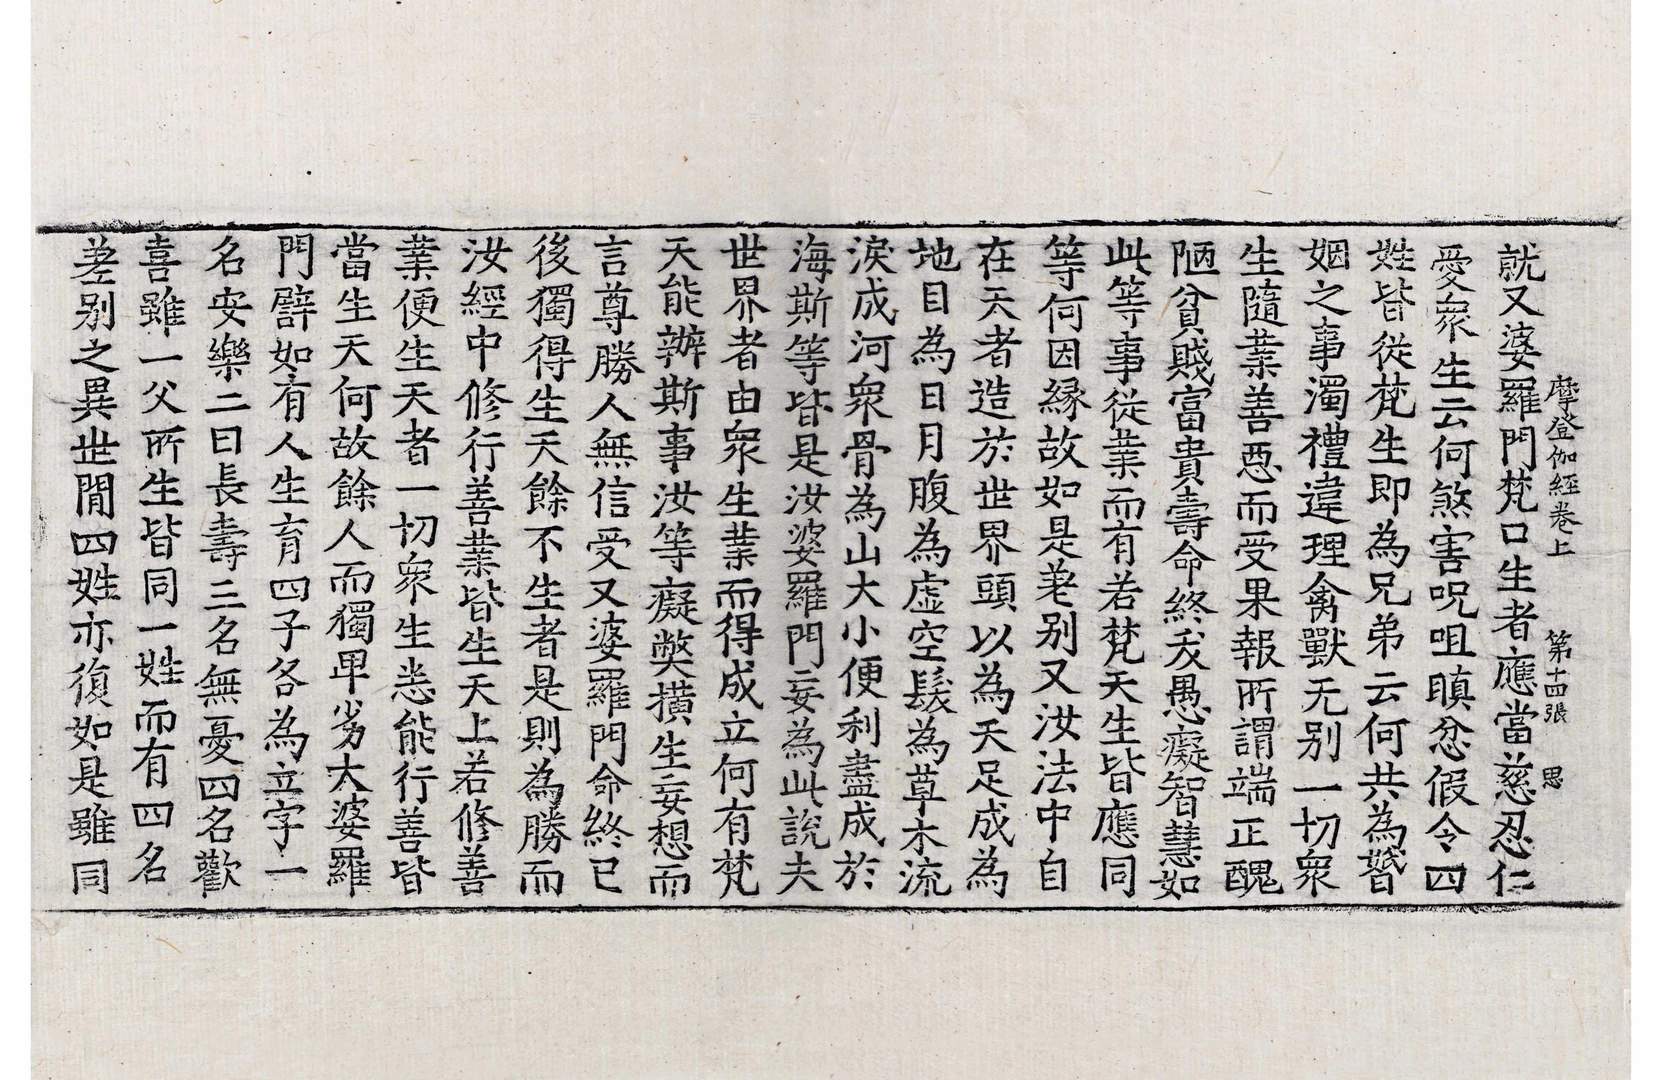 摩登伽經卷上　第十四張　思
就又婆羅門梵口生者應當慈忍仁
愛衆生云何煞害呪咀瞋忿假令四
姓皆從梵生即為兄弟云何共為婚
姻之事濁禮違理禽獸无别一切衆
生隨業善惡而受果報所謂端正醜
陋貧賤富貴壽命終夭愚癡智慧如
此等事從業而有若梵天生皆應同
等何因縁故如是差别又汝法中自
在天者造於世界頭以為天足成為
地目為日月腹為虛空髮為草木流
淚成河衆骨為山大小便利盡成於
海斯等皆是汝婆羅門妄為此說夫
世界者由衆生業而得成立何有梵
天能辦斯事汝等癡獘横生妄想而
言尊勝人無信受又婆羅門命終已
後獨得生天餘不生者是則為勝而
汝經中修行善業皆生天上若修善
業便生天者一切衆生悉能行善皆
當生天何故餘人而獨卑劣大婆羅
門譬如有人生育四子各為立字一
名安樂二曰長壽三名無憂四名歡
喜雖一父所生皆同一姓而有四名
差别之異世間四姓亦復如是雖同